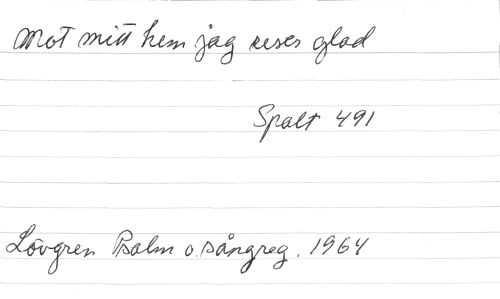 Mot mitt hem jag reser glad
Spalt 491
Lövgren Psalm o. sångreg. 1964